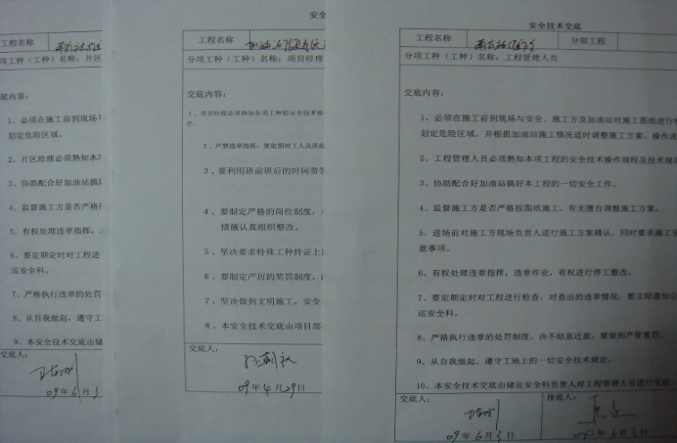 工程名称
项工种（工种）名称：片区
底内容：
1、必须在施工前到现场与
划定危险区域。
2、片区经理必须熟知本
3、协助配合好加油站搞好
4、监督施工方是否严格
5、有权处理违章指挥，
6、要定期定时对工程进
运安全科。
7、严格执行违章的处罚
8、从自我做起，遵守工
9、本安全技术交底由储
交底人：
09年6月3
安全
工程名称
分项工种（工种）名称：项目经理
交底内容：
1、项目经理必须熟知各项工种的安全技术操
2、严禁违章指挥，要定期对工人员班
3、要利用班前班后的时间带
4、要制定严格的岗位制度，
措施认真组织整改。
5、坚决要求特殊工种持证上
6、要制定严厉的奖罚制度，
7、坚决做到文明施工，安全
8、本安全技术交底由项目部
交底人：
09年4月29日
安全技术交底
工程名称
分部工程
分项工种（工种）名称：工程管理人员
交底内容：
1、必须在施工前到现场与安全、施工方及加油站对施工图纸进行
划定危险区域，并根据加油站施工情况适时调整施工方案、操作
2、工程管理人员必须熟知本项工程的安全技术操作规程及技术规
3、协助配合好加油站搞好本工程的一切安全工作。
4、监督施工方是否严格按图纸施工，有无擅自调整施工方案。
5、进场前对施工方现场负责人进行施工方案确认，同时要求施工
意事项。
6、有权处理违章指挥，违章作业，有权进行停工整改。
7、要定期定时对工程进行检查，对查出的违章情况，要立即通知
运安全科。
8、严格执行违章的处罚制度，决不姑息迁就，要做到严管重罚。
9、从自我做起，遵守工地上的一切安全技术规定。
10、本安全技术交底由储运安全科负责人对工程管理人员进行交底。
交底人：
接底人：
09年6月3日
6月3日